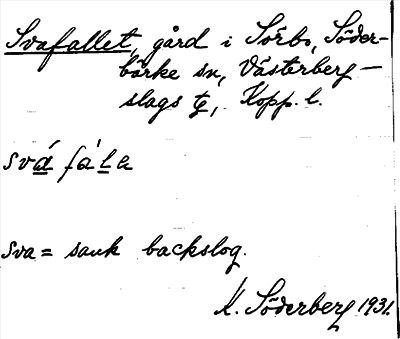 Svafallet, gård i Sörbo, Söder-
bärke sn, Västerberg-
slags tg, Kopp. l.
svá fále
sva = sank backslog.
K. Söderberg 1931.